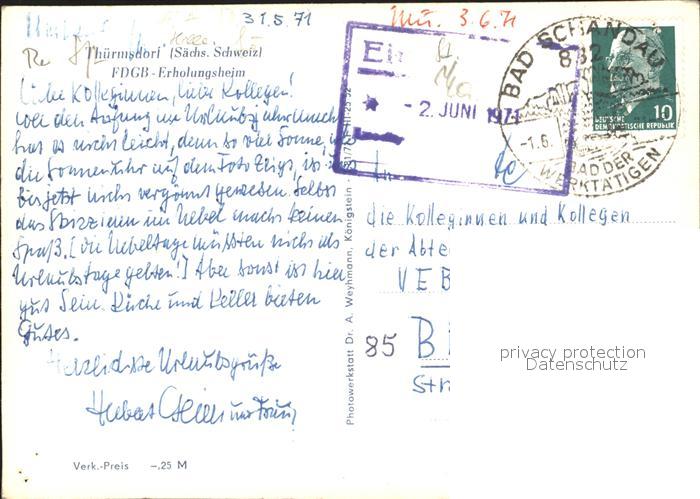 31.5.71
3.6.71
Thürmsdorf (Sächs. Schweiz)
FDGB-Erholungsheim
Liebe Kolleginnen, liebe Kollegen!
wer den Anfang im Urlaubsjahr macht
hat es nicht leicht, denn so viel Sonne, wie
die Sonnenuhr auf dem Foto zeigt, ist
bis jetzt nicht vergönnt gewesen. Selbst
das Spazieren im Nebel macht keinen
Spaß. [Die Nebeltage müßten nicht als
Urlaubstage gelten!] Aber sonst ist hier
gut Sein. Küche und Keller bieten
Gutes.
Herzlichste Urlaubsgrüße
und Frau
Verk.-Preis -,25 M
Photowerkstatt Dr. A. Weyhmann, Königstein
Ei
- 2. JUNI 1971
BAD SCHANDAU
832
-1.6.
BAD DER
WERKTÄTIGEN
10
DEUTSCHE
DEMOKRATISCHE REPUBLIK
die Kolleginnen und Kollegen
der Abte
VEB
85 B
Str
privacy protection
Datenschutz